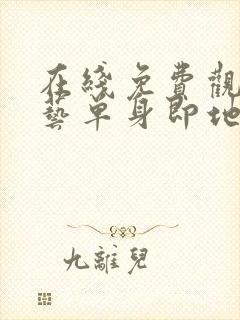 在綫免費觀
藝單身即地
九離兒